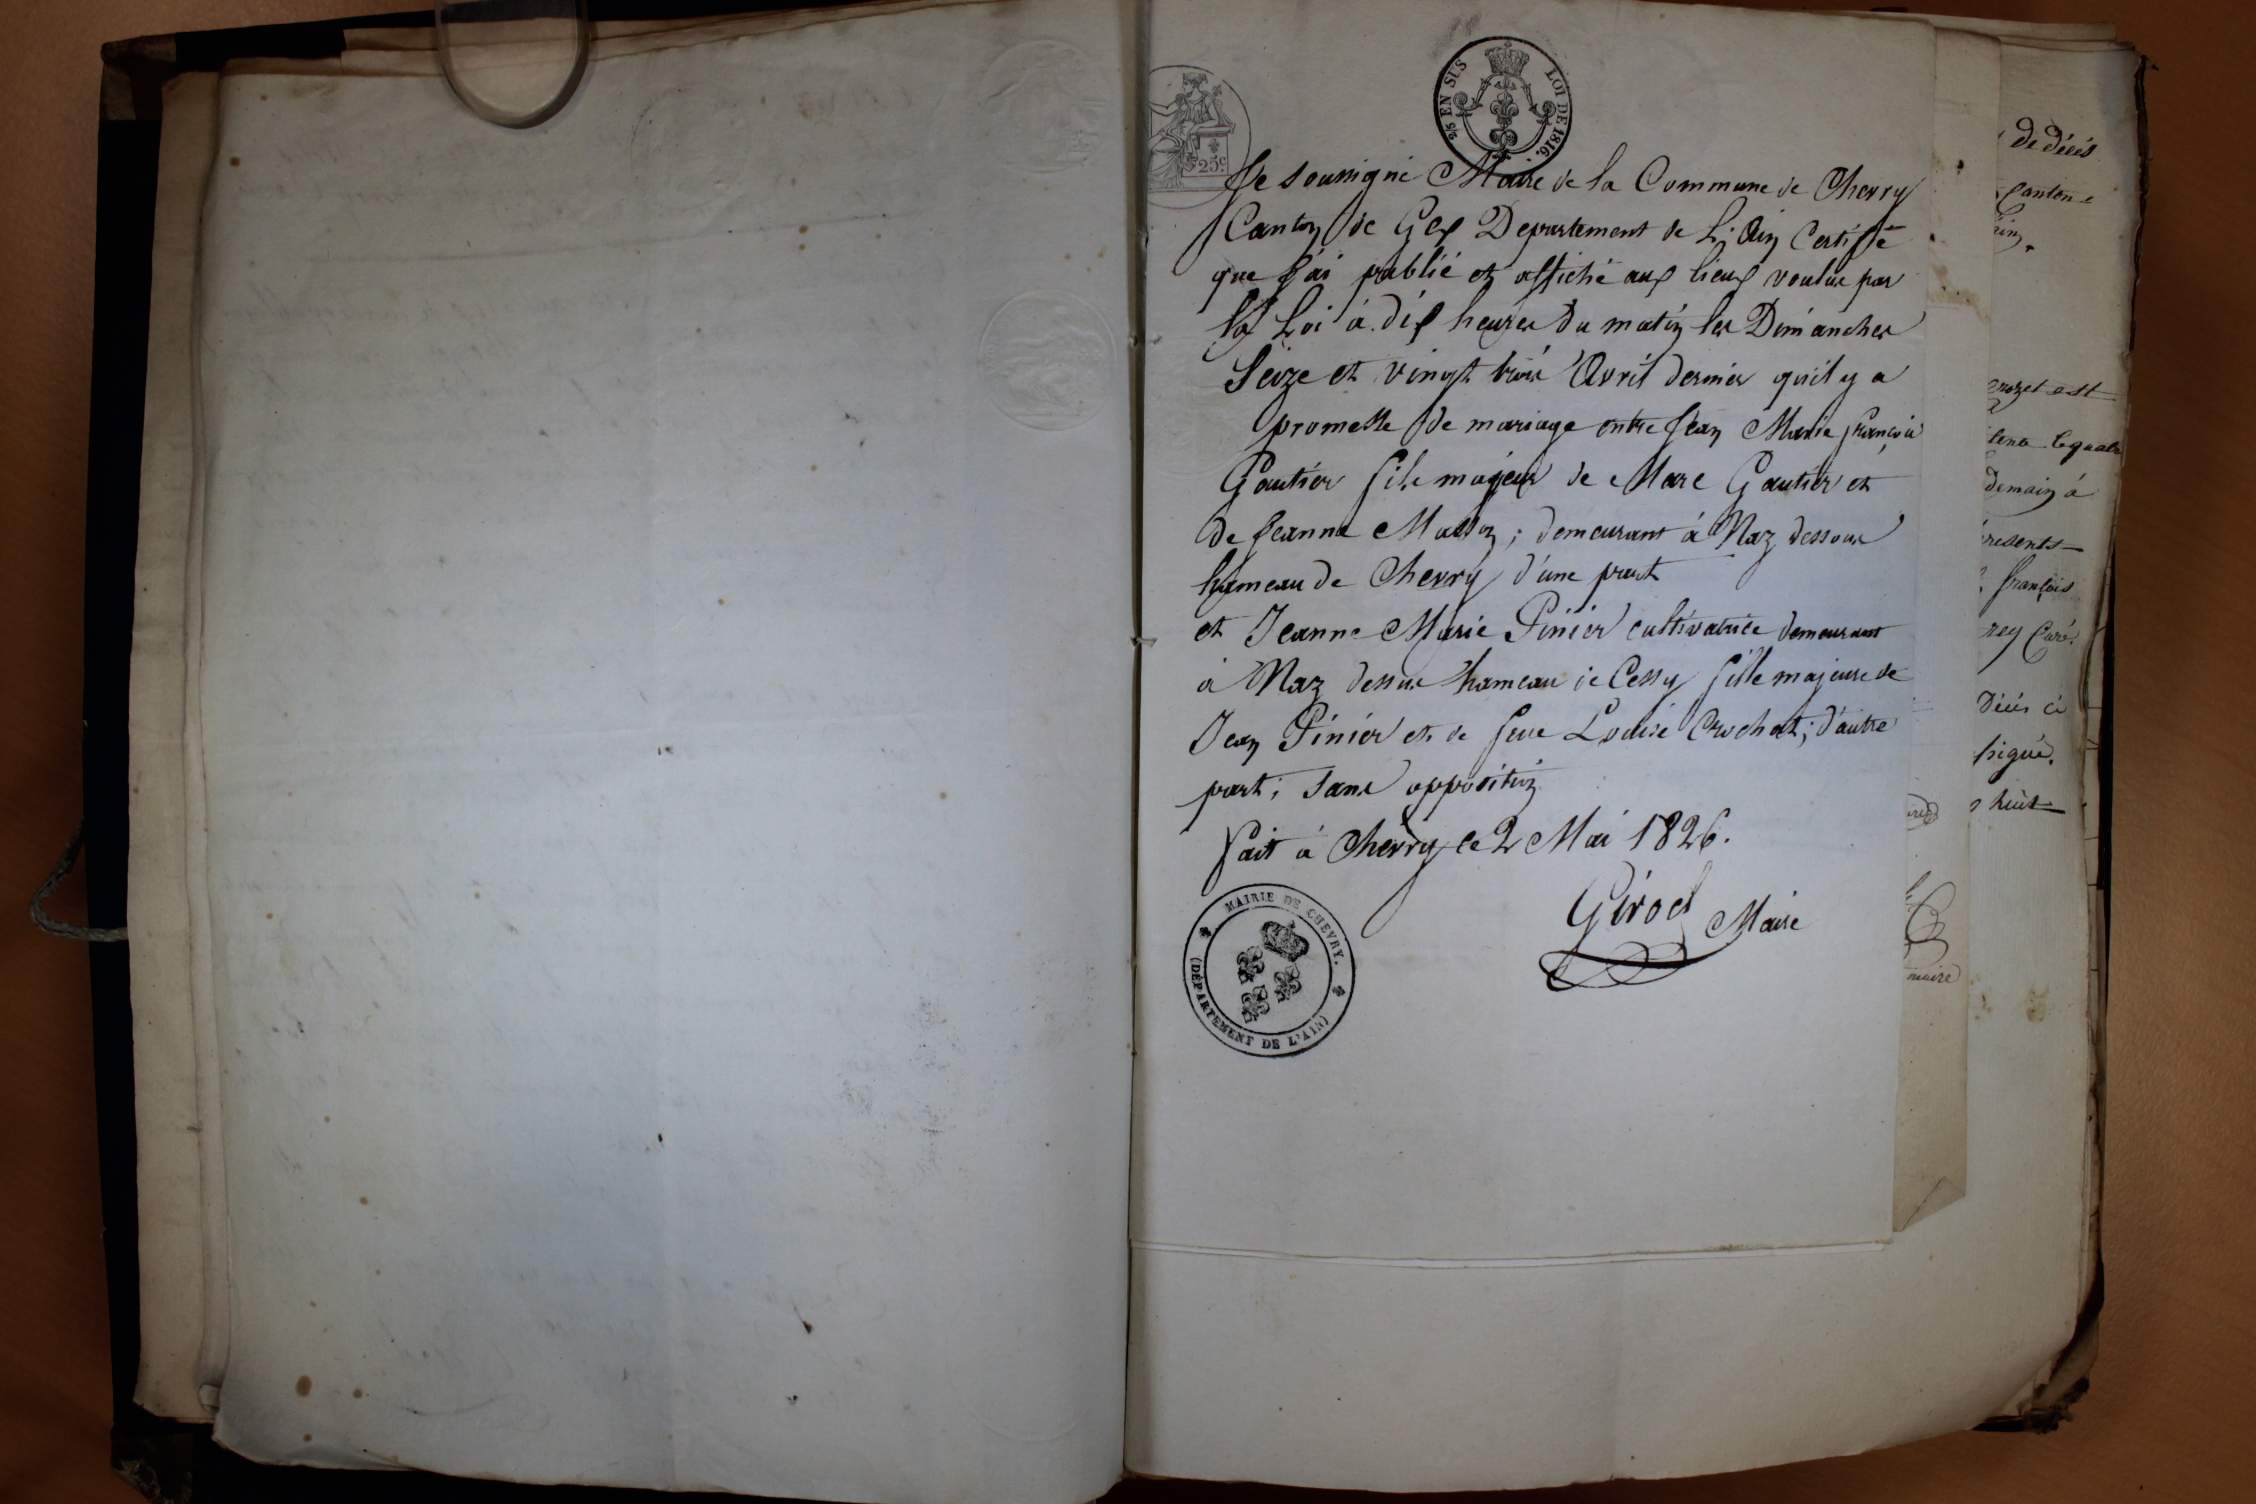 2/5 EN SUS LOI DE 1816.
25c
Je soussigné Maire de la Commune de Chevry
Canton de Gex Departement de L'Ain Certifié
que J'ai publié et affiché aux lieux voulus par
la Loi à dix heures du matin les Dimanches
Seize et vingt trois Avril dernier qu'il y a
promesse de mariage entre Jean Marie françois
Gautier fils majeur de Marc Gautier et
de Jeanne Masson ; demeurant à Naz dessous
hameau de Chevry d'une part
et Jeanne Marie Pinier cultivatrice demeurant
à Naz dessus hameau de Cessy fille majeure de
Jean Pinier et de feue Louise Crochat ; d'autre
part ; sans opposition
fait à Chevry ce 2 Mai 1826.
Girod Maire
MAIRIE DE CHEVRY.
(DÉPARTEMENT DE L'AIN)
de décès
Canton
est
demain à
françois
Curé.
Décès ci
huit
maire